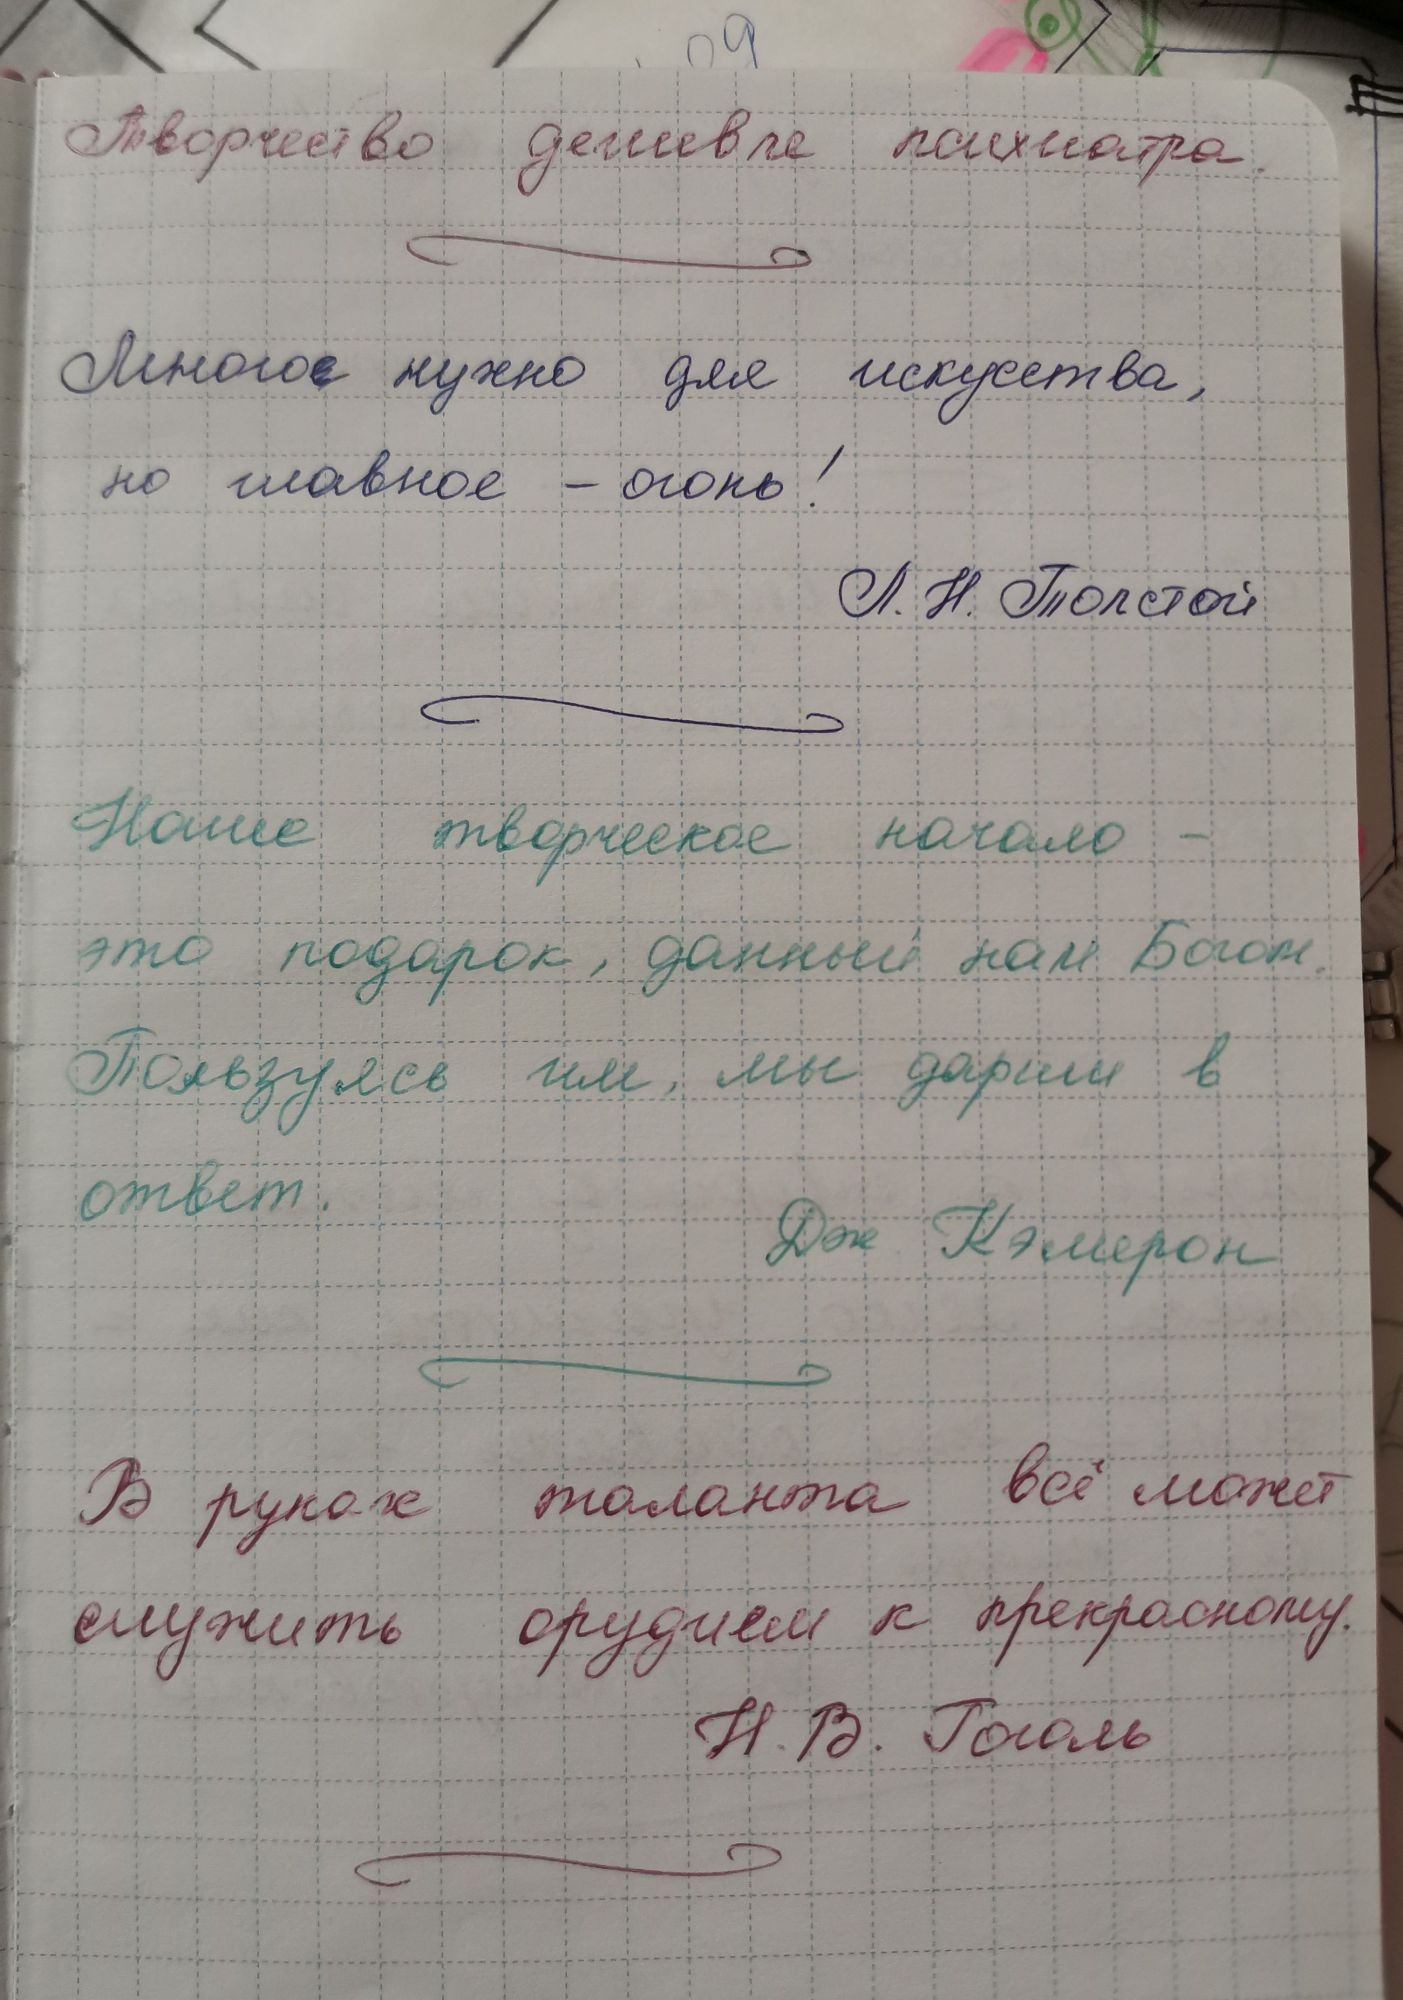 09
Творчество дешевле психиатра.
Многое нужно для искусства,
но главное – огонь!
Л. Н. Толстой
Наше творческое начало –
это подарок, данный нам Богом.
Пользуясь им, мы дарим в
ответ.
Дж Кэмерон
В руках таланта всё может
служить орудием к прекрасному.
Н. В. Гоголь